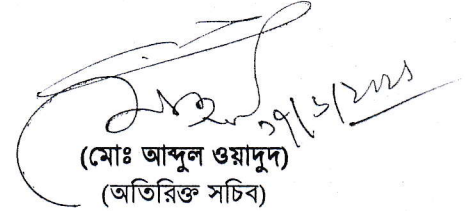 (মোঃ আব্দুল ওয়াদুদ)
(অতিরিক্ত সচিব)